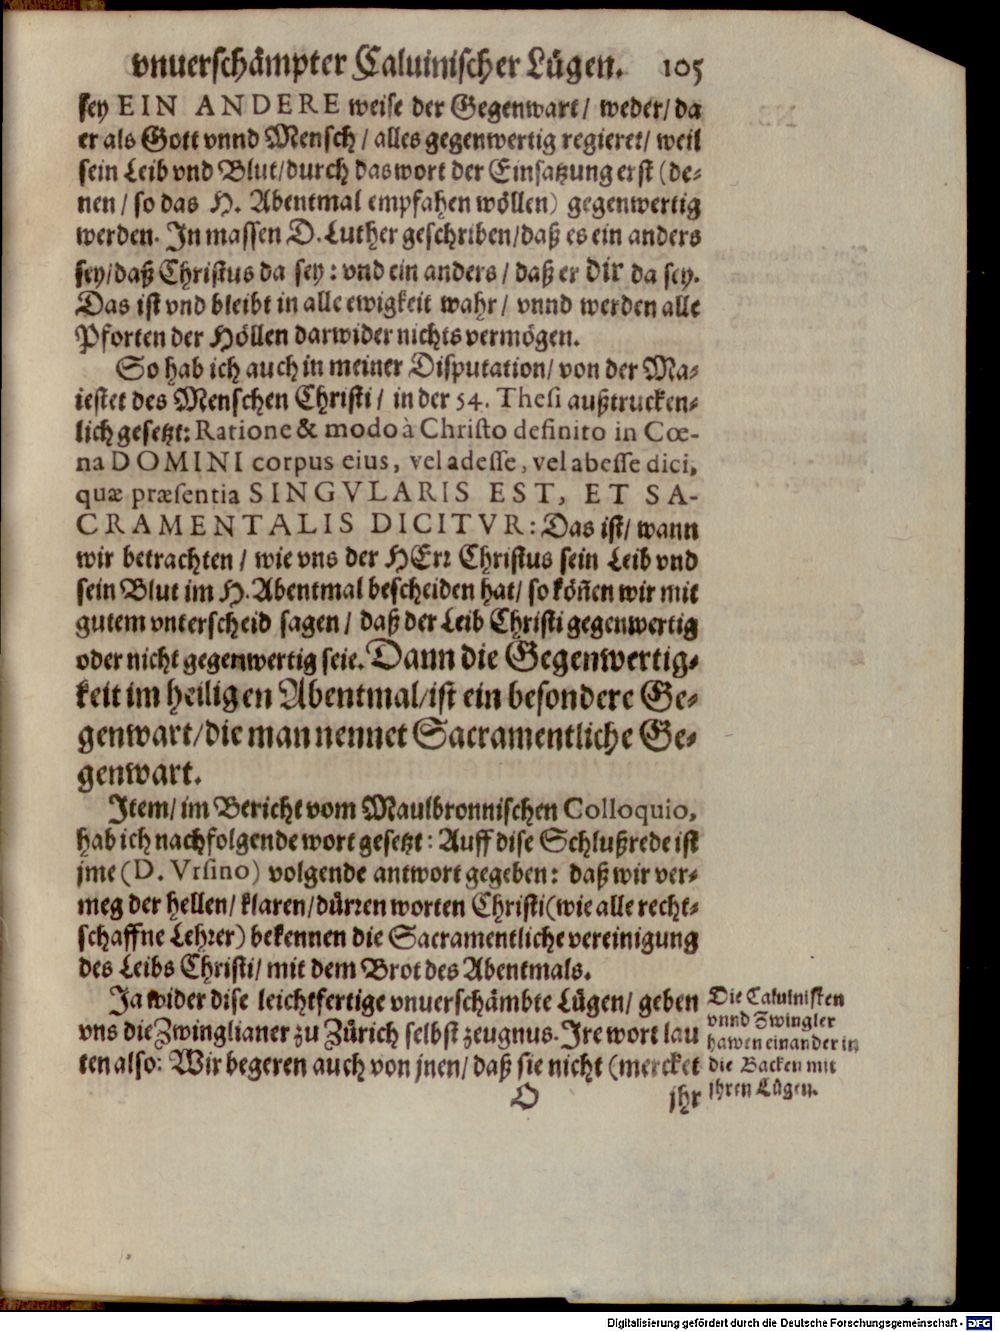 vnuerschämpter Caluinischer Lügen. 105
sey EIN ANDERE weise der Gegenwart/ weder/ da
er als Gott vnnd Mensch/ alles gegenwertig regieret/ weil
sein Leib vnd Blut/durch das wort der Einsatzung erst (de-
nen/ so das H. Abentmal empfahen wöllen) gegenwertig
werden. In massen D. Luther geschriben/daß es ein anders
sey/daß Christus da sey: vnd ein anders/ daß er dir da sey.
Das ist vnd bleibt in alle ewigkeit wahr/ vnnd werden alle
Pforten der Höllen darwider nichts vermögen.
So hab ich auch in meiner Disputation/ von der Ma-
iestet des Menschen Christi/ in der 54. Thesi außtrucken-
lich gesetzt: Ratione & modo à Christo definito in Cœ-
na DOMINI corpus eius, vel adesse, vel abesse dici,
quæ præsentia SINGVLARIS EST, ET SA-
CRAMENTALIS DICITVR: Das ist/ wann
wir betrachten/ wie vns der HErr Christus sein Leib vnd
sein Blut im H. Abentmal bescheiden hat/ so köñen wir mit
gutem vnterscheid sagen/ daß der Leib Christi gegenwertig
oder nicht gegenwertig seie. Dann die Gegenwertig-
keit im heiligen Abentmal/ist ein besondere Ge-
genwart/die man nennet Sacramentliche Ge-
genwart.
Item/ im Bericht vom Maulbronnischen Colloquio,
hab ich nachfolgende wort gesetzt: Auff dise Schlußrede ist
jme (D. Vrsino) volgende antwort gegeben: daß wir ver-
meg der hellen/ klaren/dürren worten Christi(wie alle recht-
schaffne Lehrer) bekennen die Sacramentliche vereinigung
des Leibs Christi/ mit dem Brot des Abentmals.
Ja wider dise leichtfertige vnuerschämbte Lügen/ geben
vns die Zwinglianer zu Zürich selbst zeugnus. Ire wort lau
ten also: Wir begeren auch von jnen/ daß sie nicht (mercket
Die Caluinisten
vnnd Zwingler
hawen einander in
die Backen mit
ihren Lügen.
O ihr
Digitalisierung gefördert durch die Deutsche Forschungsgemeinschaft - DFG